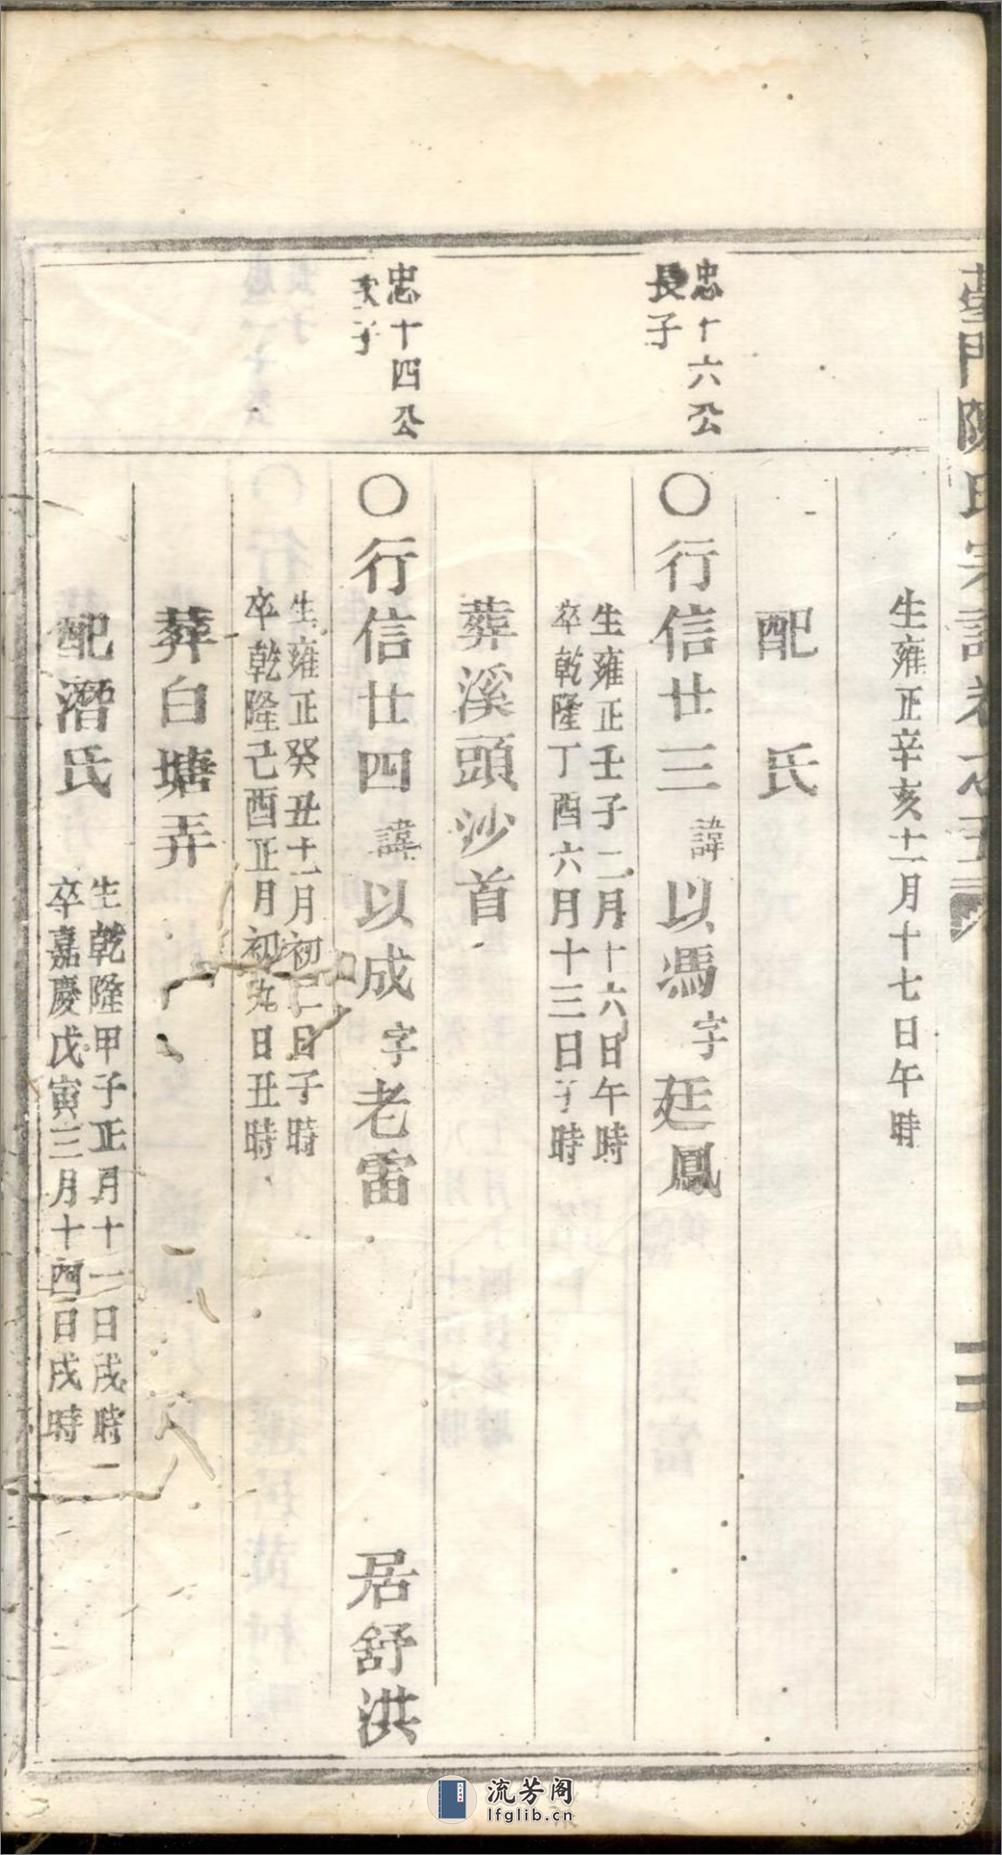 門陳氏宗譜卷之五
二
生雍正辛亥十一月十七日午時
配　氏
忠十六公
長子
〇行信廿三諱以馮字廷鳳
生雍正壬子二月十六日午時
卒乾隆丁酉六月十三日子時
葬溪頭沙首
忠十四公
次子
〇行信廿四諱以成字老雷　居舒洪
生雍正癸丑十一月初二日子時
卒乾隆己酉正月初九日丑時
葬白塘弄
配潛氏
生乾隆甲子正月十一日戌時
卒嘉慶戊寅三月十四日戌時
流芳阁
lfglib.cn